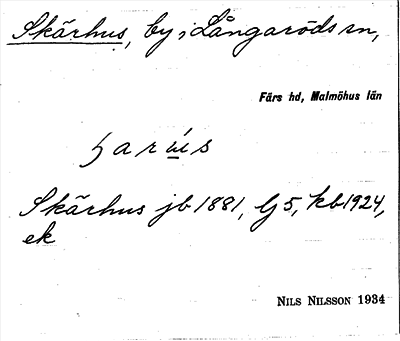 Skärhus, by i Långaröds sn,
Färs hd, Malmöhus län
Skärhus jb 1881, G 5, kb 1924,
ek
NILS NILSSON 1934